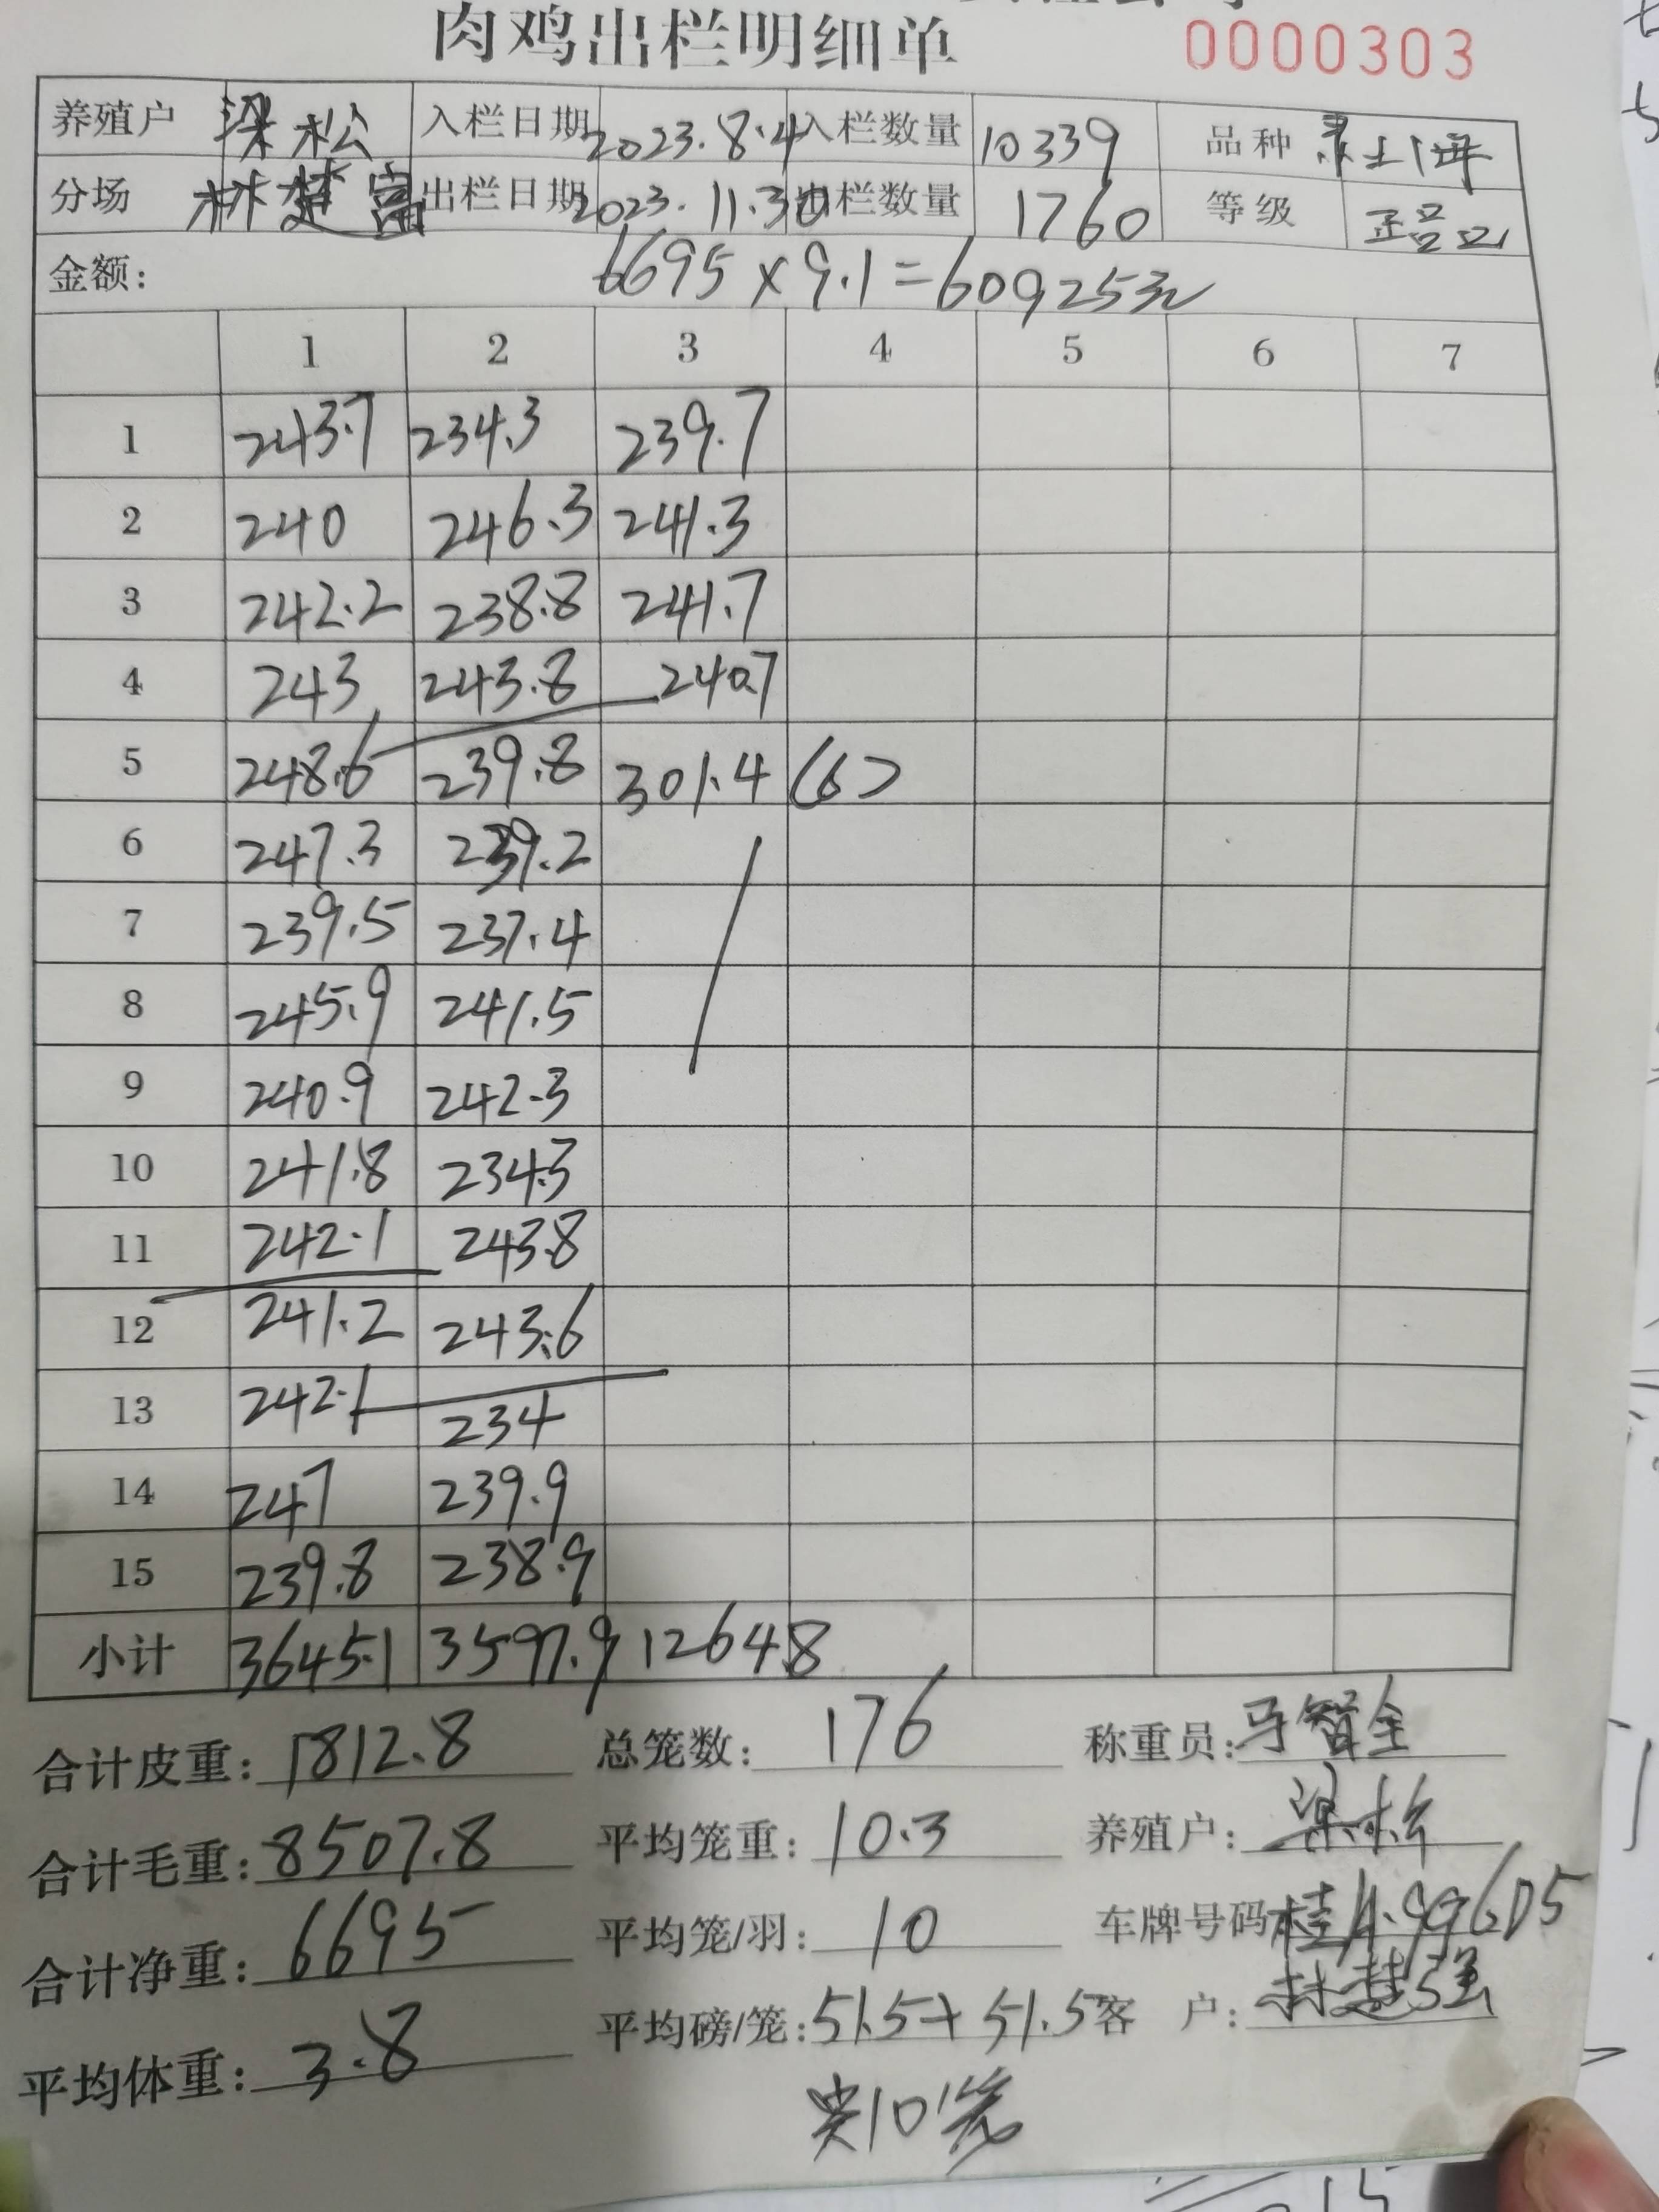 肉鸡出栏明细单 0000303
养殖户 梁松 入栏日期 2023.8.4 入栏数量 10339 品种
分场 林楚富 出栏日期 2023.11.30 出栏数量 1760 等级 正品
金额: 6695×9.1=609253元
1 2 3 4 5 6 7
1 243.7 234.3 239.7
2 240 246.3 241.3
3 242.2 238.8 241.7
4 243 243.8 240.7
5 248.6 239.8 301.4 (6)
6 247.3 239.2
7 239.5 237.4
8 245.9 241.5
9 240.9 242.3
10 241.8 234.3
11 242.1 243.8
12 241.2 243.6
13 242.1 234
14 247 239.9
15 239.8 238.9
小计 3645.1 3597.9 1264.8
合计皮重: 1812.8 总笼数: 176 称重员: 马智全
合计毛重: 8507.8 平均笼重: 10.3 养殖户: 梁松
合计净重: 6695 平均笼/羽: 10 车牌号码 桂A.996D5
平均体重: 3.8 平均磅/笼: 51.5+51.5 客 户: 林楚强
共10笼